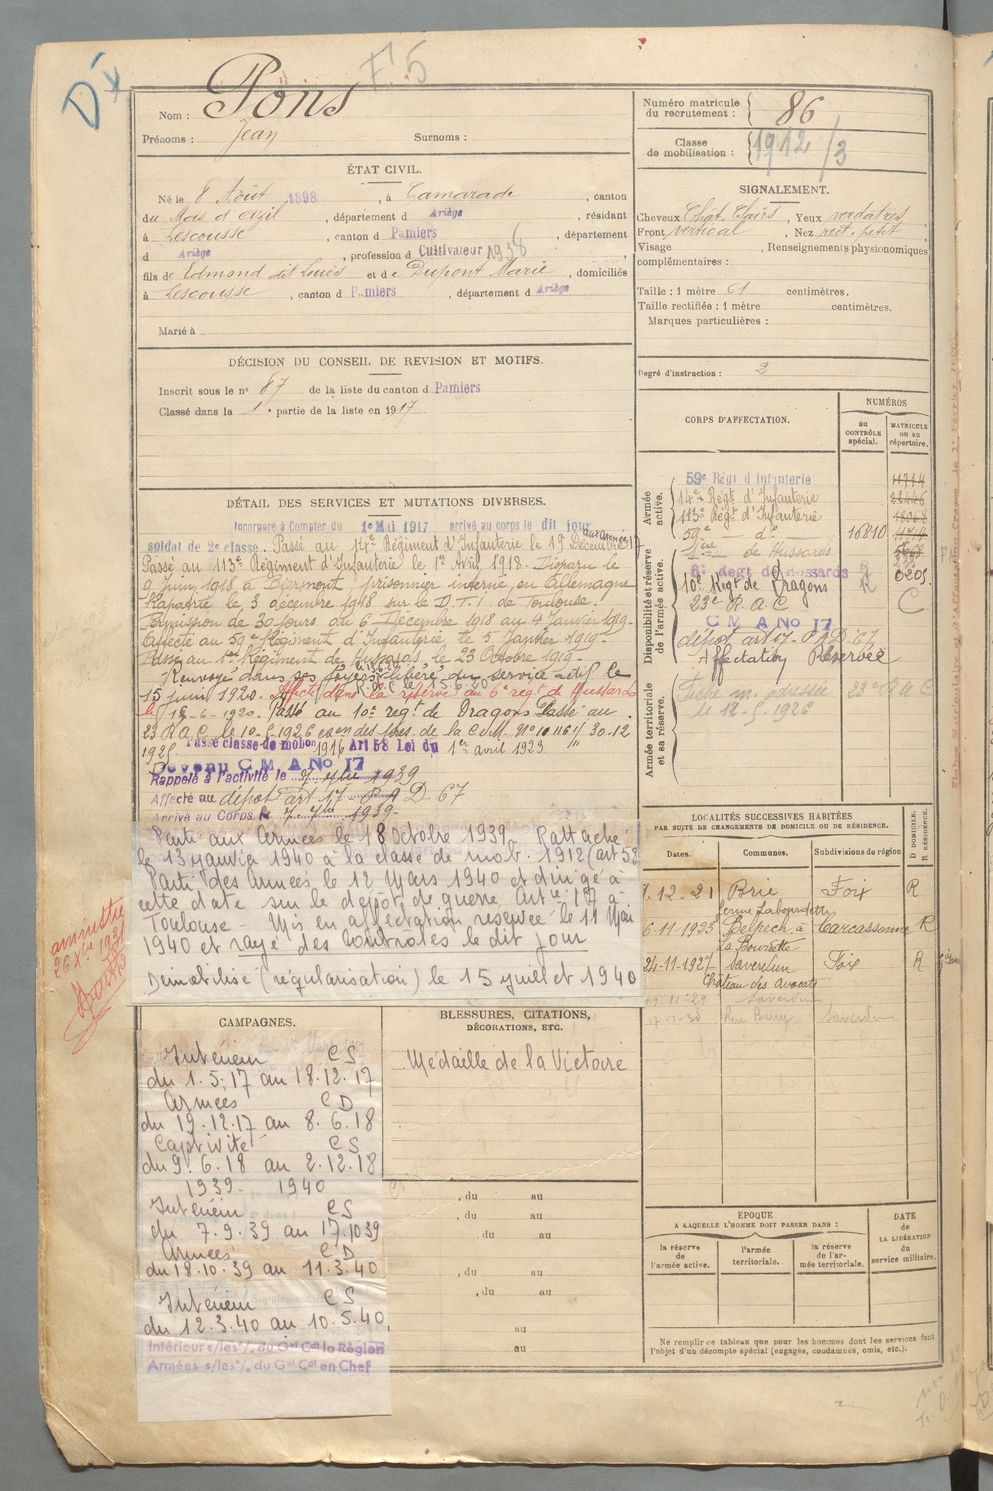 D
F 5
Nom : Pons
Prénoms : Jean Surnoms :
Numéro matricule du recrutement : 86
Classe de mobilisation : 1912/3
ÉTAT CIVIL.
Né le 8 Août 1898, à Camarade, canton
du Mas d'azil, département d Ariège, résidant
à Lescousse, canton d Pamiers, département
d Ariège, profession d Cultivateur 1938
fils de Edmond dit Louis et de Dupont Marie, domiciliés
à Lescousse, canton d Pamiers, département d Ariège
Marié à
SIGNALEMENT.
Cheveux Chât. Clairs, Yeux verdatres
Front vertical, Nez rect. petit,
Visage , Renseignements physionomiques
complémentaires :
Taille : 1 mètre 61 centimètres.
Taille rectifiée : 1 mètre centimètres.
Marques particulières :
Degré d'instruction : 2
DÉCISION DU CONSEIL DE REVISION ET MOTIFS.
Inscrit sous le n° 87 de la liste du canton d Pamiers
Classé dans la 1e partie de la liste en 1917
CORPS D'AFFECTATION.
NUMÉROS
au CONTRÔLE spécial.
MATRICULE ou au répertoire.
Armée active.
59e Régt d'Infanterie
14e Régt d'Infanterie
113e Régt d'Infanterie
59e — do — 16810
1er — de Hussards
Disponibilité et réserve de l'armée active.
6e Regt de Hussards
10e Regt de Dragons
23e R A C
C M A No 17
dépot art 17 - P A D 67
Affectation Réservée
Armée territoriale et sa réserve.
Fiche m. adressée 23e R A C
le 12-5-1926
DÉTAIL DES SERVICES ET MUTATIONS DIVERSES.
Incorporé à Compter du 1er Mai 1917 arrivé au corps le dit jour
soldat de 2e classe. Passé au 14e Régiment d'Infanterie le 19 Décembre 17 aux armées
Passé au 113e Régiment d'Infanterie le 1er Avril 1918. Disparu le
9 Juin 1918 à prisonnier interné en Allemagne
Rapatrié le 3 décembre 1918 sur le D.T.I. de Toulouse.
Permission de 30 jours du 6 Décembre 1918 au 4 Janvier 1919
Affecté au 59e Régiment d'Infanterie le 5 Janvier 1919
Passé au 1er Régiment de Hussards le 23 Octobre 1919
Renvoyé dans ses foyers libéré du service actif le
15 juin 1920. Affecté dans la réserve au 6e régt de Hussards
le 15-6-1920. Passé au 10e regt de Dragons Passé au
23 R A C le 10-5-1926 N° 10116 30-12
1925. Passé classe de mobon 1916 Art 58 Loi du 1er avril 1923
Devenu C M A No 17
Rappelé à l'activité le 7 7bre 1939
Affecté au dépôt art 17 - P A D 67
Arrivé au Corps le 7 7bre 1939
Parti aux Armées le 18 Octobre 1939. Rattaché
le 13 janvier 1940 à la classe de mob. 1912 (art 58
Parti des Armées le 12 Mars 1940 et dirigé à
cette date sur le dépôt de guerre Artie 17 à
Toulouse - Mis en affectation réservée le 11 Mai
1940 et rayé des contrôles le dit jour
Démobilisé (régularisation) le 15 juillet 1940
amnistie
26 Xbre 1931
LOCALITÉS SUCCESSIVES HABITÉES
PAR SUITE DE CHANGEMENTS DE DOMICILE OU DE RÉSIDENCE.
Dates. Communes. Subdivisions de région D DOMICILE. R RÉSIDENCE.
7.12.21 Brie Foix R
ferme Labourdette
6-11-1925 Belpech à Carcassonne R
La Bourdette
24-11-1927 Saverdun Foix R
Château des Avocats
29-11-29 Saverdun
Saverdun
CAMPAGNES.
Intérieur C S
du 1.5.17 au 18.12.17
Armées C D
du 19.12.17 au 8.6.18
Captivité C S
du 9.6.18 au 2.12.18
1939 - 1940
Intérieur C S
du 7.9.39 au 17.10 39
Armées C D
du 18.10.39 au 11.3.40
Intérieur C S
du 12.3.40 au 10.5.40
Intérieur s/les o/. du Gal Cdt la Région
Armées s/les o/. du Gal Cdt en Chef
BLESSURES, CITATIONS,
DÉCORATIONS, ETC.
Médaille de la Victoire
, du au
, du au
, du au
, du au
, du au
au
au
EPOQUE
A LAQUELLE L'HOMME DOIT PASSER DANS :
la réserve de l'armée active.
l'armée territoriale.
la réserve de l'armée territoriale.
DATE de LA LIBÉRATION du service militaire.
Ne remplir ce tableau que pour les hommes dont les services font
l'objet d'un décompte spécial (engagés, condamnés, omis, etc.).